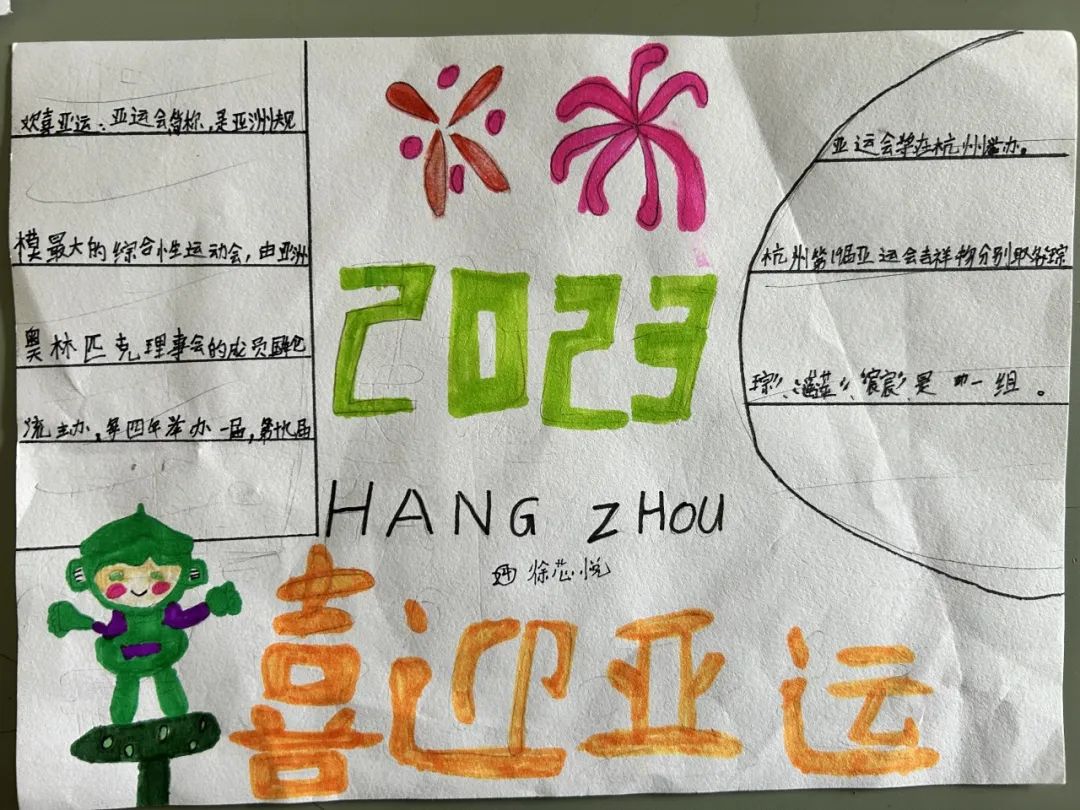 欢喜亚运:亚运会简称,是亚洲规
模最大的综合性运动会,由亚洲
奥林匹克理事会的成员国轮
流主办,每四年举办一届,第十九届
亚运会举在杭州举办。
杭州第19届亚运会吉祥物分别取名琮
琮、莲莲、宸宸是一组。
2023
HANG ZHOU
四 徐芯悦
喜迎亚运